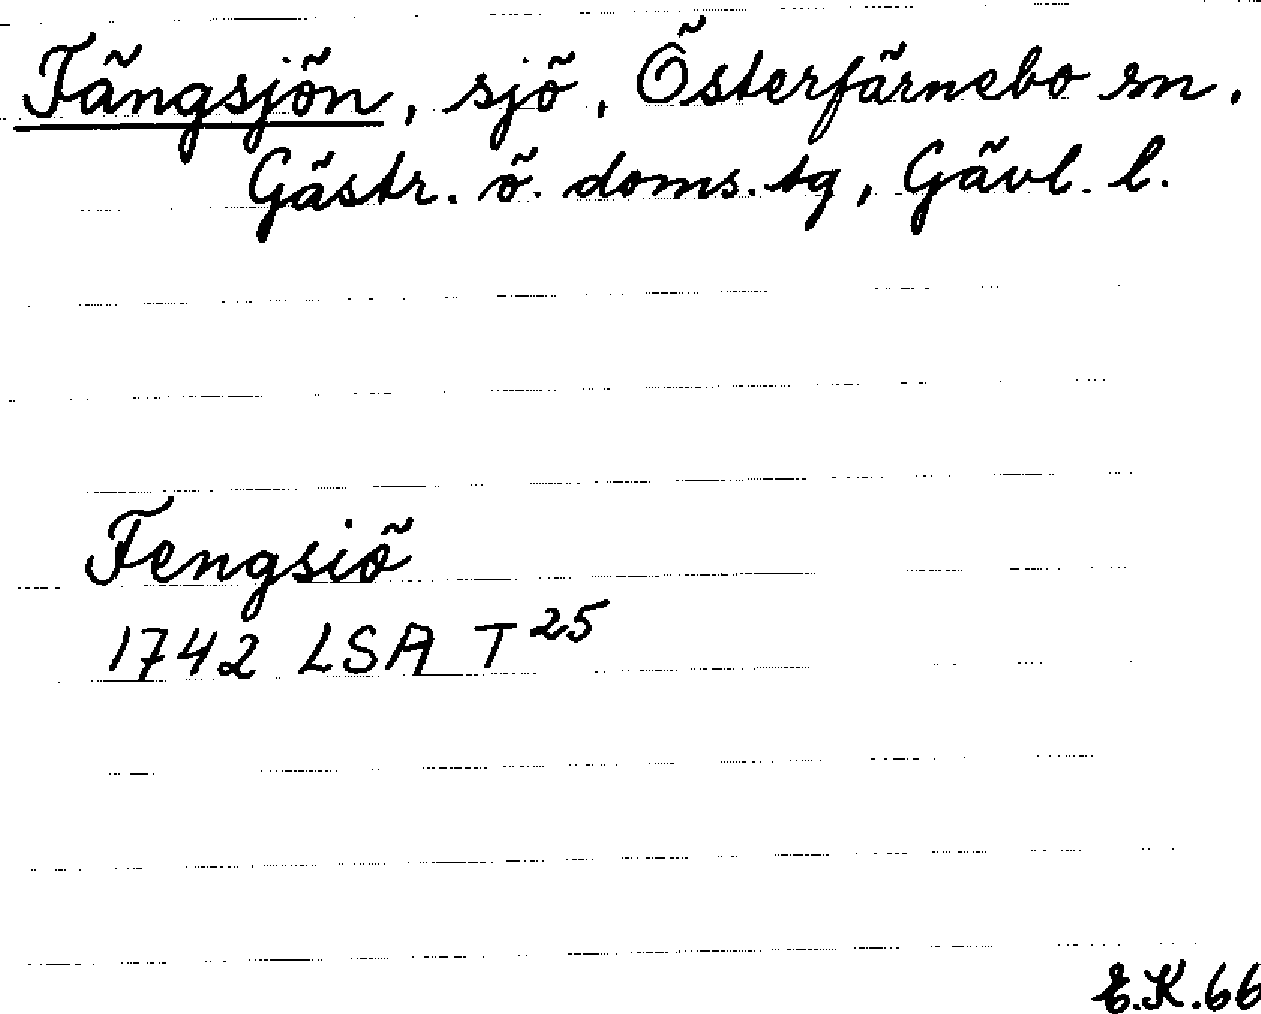 Fängsjön, sjö, Österfärnebo sn.
Gästr. ö. doms. tg, Gävl. l.
Fengsiö
1742 LSA T 25
E.K.66